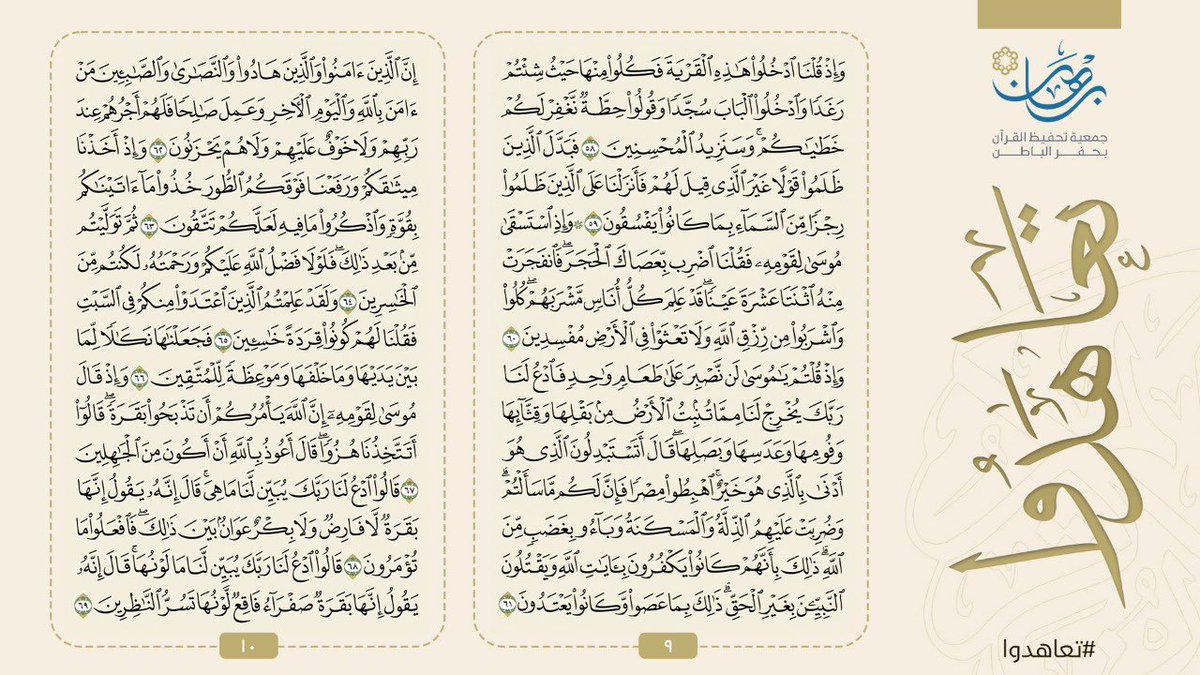 برهان
جمعية تحفيظ القرآن
بحفر الباطن
تعاهدوا
#تعاهدوا
وَإِذْ قُلْنَا ٱدْخُلُوا۟ هَٰذِهِ ٱلْقَرْيَةَ فَكُلُوا۟ مِنْهَا حَيْثُ شِئْتُمْ
رَغَدًا وَٱدْخُلُوا۟ ٱلْبَابَ سُجَّدًا وَقُولُوا۟ حِطَّةٌ نَّغْفِرْ لَكُمْ
خَطَٰيَٰكُمْ ۚ وَسَنَزِيدُ ٱلْمُحْسِنِينَ ٥٨ فَبَدَّلَ ٱلَّذِينَ
ظَلَمُوا۟ قَوْلًا غَيْرَ ٱلَّذِى قِيلَ لَهُمْ فَأَنزَلْنَا عَلَى ٱلَّذِينَ ظَلَمُوا۟
رِجْزًا مِّنَ ٱلسَّمَآءِ بِمَا كَانُوا۟ يَفْسُقُونَ ٥٩ ۞ وَإِذِ ٱسْتَسْقَىٰ
مُوسَىٰ لِقَوْمِهِۦ فَقُلْنَا ٱضْرِب بِّعَصَاكَ ٱلْحَجَرَ ۖ فَٱنفَجَرَتْ
مِنْهُ ٱثْنَتَا عَشْرَةَ عَيْنًا ۖ قَدْ عَلِمَ كُلُّ أُنَاسٍ مَّشْرَبَهُمْ ۖ كُلُوا۟
وَٱشْرَبُوا۟ مِن رِّزْقِ ٱللَّهِ وَلَا تَعْثَوْا۟ فِى ٱلْأَرْضِ مُفْسِدِينَ ٦٠
وَإِذْ قُلْتُمْ يَٰمُوسَىٰ لَن نَّصْبِرَ عَلَىٰ طَعَامٍ وَٰحِدٍ فَٱدْعُ لَنَا
رَبَّكَ يُخْرِجْ لَنَا مِمَّا تُنۢبِتُ ٱلْأَرْضُ مِنۢ بَقْلِهَا وَقِثَّآئِهَا
وَفُومِهَا وَعَدَسِهَا وَبَصَلِهَا ۖ قَالَ أَتَسْتَبْدِلُونَ ٱلَّذِى هُوَ
أَدْنَىٰ بِٱلَّذِى هُوَ خَيْرٌ ۚ ٱهْبِطُوا۟ مِصْرًا فَإِنَّ لَكُم مَّا سَأَلْتُمْ ۗ
وَضُرِبَتْ عَلَيْهِمُ ٱلذِّلَّةُ وَٱلْمَسْكَنَةُ وَبَآءُو بِغَضَبٍ مِّنَ
ٱللَّهِ ۗ ذَٰلِكَ بِأَنَّهُمْ كَانُوا۟ يَكْفُرُونَ بِـَٔايَٰتِ ٱللَّهِ وَيَقْتُلُونَ
ٱلنَّبِيِّـۧنَ بِغَيْرِ ٱلْحَقِّ ۗ ذَٰلِكَ بِمَا عَصَوا۟ وَّكَانُوا۟ يَعْتَدُونَ ٦١
٩
إِنَّ ٱلَّذِينَ ءَامَنُوا۟ وَٱلَّذِينَ هَادُوا۟ وَٱلنَّصَٰرَىٰ وَٱلصَّٰبِـِٔينَ مَنْ
ءَامَنَ بِٱللَّهِ وَٱلْيَوْمِ ٱلْءَاخِرِ وَعَمِلَ صَٰلِحًا فَلَهُمْ أَجْرُهُمْ عِندَ
رَبِّهِمْ وَلَا خَوْفٌ عَلَيْهِمْ وَلَا هُمْ يَحْزَنُونَ ٦٢ وَإِذْ أَخَذْنَا
مِيثَٰقَكُمْ وَرَفَعْنَا فَوْقَكُمُ ٱلطُّورَ خُذُوا۟ مَآ ءَاتَيْنَٰكُم
بِقُوَّةٍ وَٱذْكُرُوا۟ مَا فِيهِ لَعَلَّكُمْ تَتَّقُونَ ٦٣ ثُمَّ تَوَلَّيْتُم
مِّنۢ بَعْدِ ذَٰلِكَ ۖ فَلَوْلَا فَضْلُ ٱللَّهِ عَلَيْكُمْ وَرَحْمَتُهُۥ لَكُنتُم مِّنَ
ٱلْخَٰسِرِينَ ٦٤ وَلَقَدْ عَلِمْتُمُ ٱلَّذِينَ ٱعْتَدَوْا۟ مِنكُمْ فِى ٱلسَّبْتِ
فَقُلْنَا لَهُمْ كُونُوا۟ قِرَدَةً خَٰسِـِٔينَ ٦٥ فَجَعَلْنَٰهَا نَكَٰلًا لِّمَا
بَيْنَ يَدَيْهَا وَمَا خَلْفَهَا وَمَوْعِظَةً لِّلْمُتَّقِينَ ٦٦ وَإِذْ قَالَ
مُوسَىٰ لِقَوْمِهِۦٓ إِنَّ ٱللَّهَ يَأْمُرُكُمْ أَن تَذْبَحُوا۟ بَقَرَةً ۖ قَالُوٓا۟
أَتَتَّخِذُنَا هُزُوًا ۖ قَالَ أَعُوذُ بِٱللَّهِ أَنْ أَكُونَ مِنَ ٱلْجَٰهِلِينَ
٦٧ قَالُوا۟ ٱدْعُ لَنَا رَبَّكَ يُبَيِّن لَّنَا مَا هِىَ ۚ قَالَ إِنَّهُۥ يَقُولُ إِنَّهَا
بَقَرَةٌ لَّا فَارِضٌ وَلَا بِكْرٌ عَوَانٌۢ بَيْنَ ذَٰلِكَ ۖ فَٱفْعَلُوا۟ مَا
تُؤْمَرُونَ ٦٨ قَالُوا۟ ٱدْعُ لَنَا رَبَّكَ يُبَيِّن لَّنَا مَا لَوْنُهَا ۚ قَالَ إِنَّهُۥ
يَقُولُ إِنَّهَا بَقَرَةٌ صَفْرَآءُ فَاقِعٌ لَّوْنُهَا تَسُرُّ ٱلنَّٰظِرِينَ ٦٩
١٠